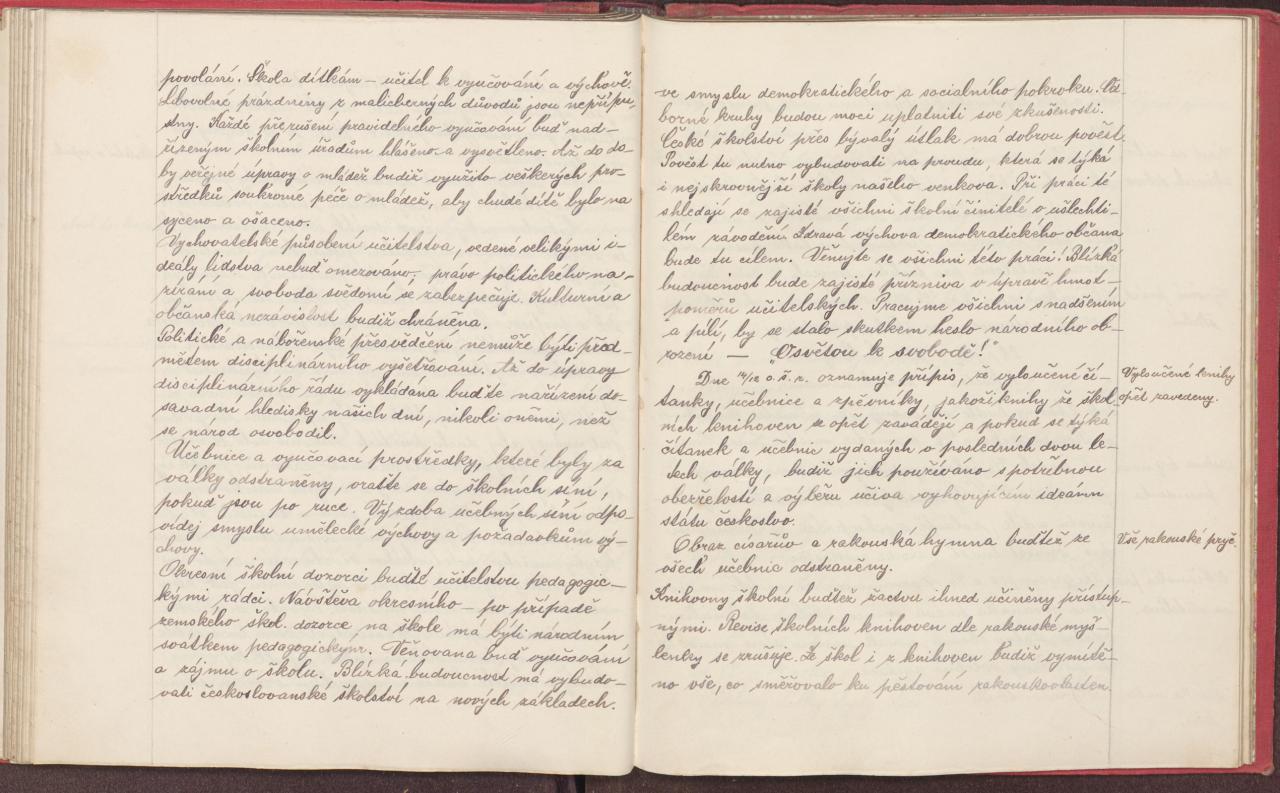 povolání. Škola dítkám – učitel k vyučování a výchově.
Libovolné prázdniny z malicherných důvodů jsou nepřípu-
stny. Každé přerušení pravidelného vyučování buď nad-
řízeným školním úřadům hlášeno a vysvětleno. Až do do-
by veřejné úpravy o mládež budiž využito veškerých pro-
středků soukromé péče o mládež, aby chudé dítě bylo na
syceno a ošaceno.
Vychovatelské působení učitelstva, vedené velikými i-
deály lidstva nebuď omezováno, právo politického na-
zírání a svoboda svědomí se zabezpečuje. Kulturní a
občanská nezávislost budiž chráněna.
Politické a náboženské přesvědčení nemůže býti před-
mětem disciplinárního vyšetřování. Až do úpravy
disciplinárního řádu vykládána buďte nařízení do-
savadní hledisky našich dní, nikoli oněmi, než
se národ osvobodil.
Učebnice a vyučovací prostředky, které byly za
války odstraněny, vraťte se do školních síní,
pokud jsou po ruce. Výzdoba učebných síní odpo-
vídej smyslu umělecké výchovy a požadavkům vý-
chovy.
Okresní školní dozorci buďte učitelstvu pedagogic-
kými rádci. Návštěva okresního – po případě
zemského škol. dozorce, na škole má býti národním
svátkem pedagogickým. Věnována buď vyučování
a zájmu o školu. Blízká budoucnost má vybudo-
vati českoslovanské školství na nových základech.
ve smyslu demokratického a socialního pokroku. Od
borné kruhy budou moci uplatniti své zkušenosti.
České školství přes bývalý útlak má dobrou pověst.
Pověst tu nutno vybudovati na pravdu, která se týká
i nejskrovnější školy našeho venkova. Při práci té
shledají se zajisté všichni školní činitelé v ušlechti-
lém závodění. Zdravá výchova demokratického občana
bude tu cílem. Věnujte se všichni této práci! Blízká
budoucnost bude zajisté přízniva v úpravě hmot-
poměrů učitelských. Pracujme všichni s nadšením
a pílí, by se stalo skutkem heslo národního ob-
rození – „Osvětou k svobodě!"
Dne 14/12 o.š.r. oznamuje přípis, že vyloučené čí-
tanky, učebnice a zpěvníky, jakož i knihy ze škol
ních knihoven se opět zavádějí a pokud se týká
čítanek a učebnic vydaných v posledních dvou le-
tech války, budiž jich používáno s potřebnou
obezřelostí a výběru učiva vyhovujícím ideám
státu českoslov.
Obraz císařův a rakouská hymna buďtež ze
všech učebnic odstraněny.
Knihovny školní buďtež žactvu ihned učiněny přístup-
nými. Revise školních knihoven dle rakouské myš-
lenky se zrušuje. Ze škol i z knihoven budiž vymítě-
no vše, co směřovalo ku pěstování rakouskovlasten.
Vyloučené knihy
opět zavedeny.
Vše rakouské pryč.